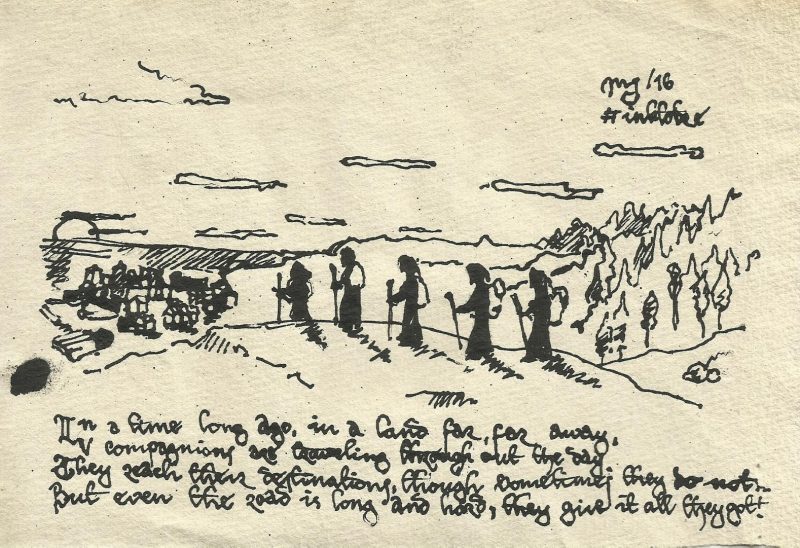 mg/16
#inktober
In a time long ago, in a land far, far away,
V companions are traveling through out the day.
They reach their destinations, though sometimes they do not..
But even the road is long and hard, they give it all they got!